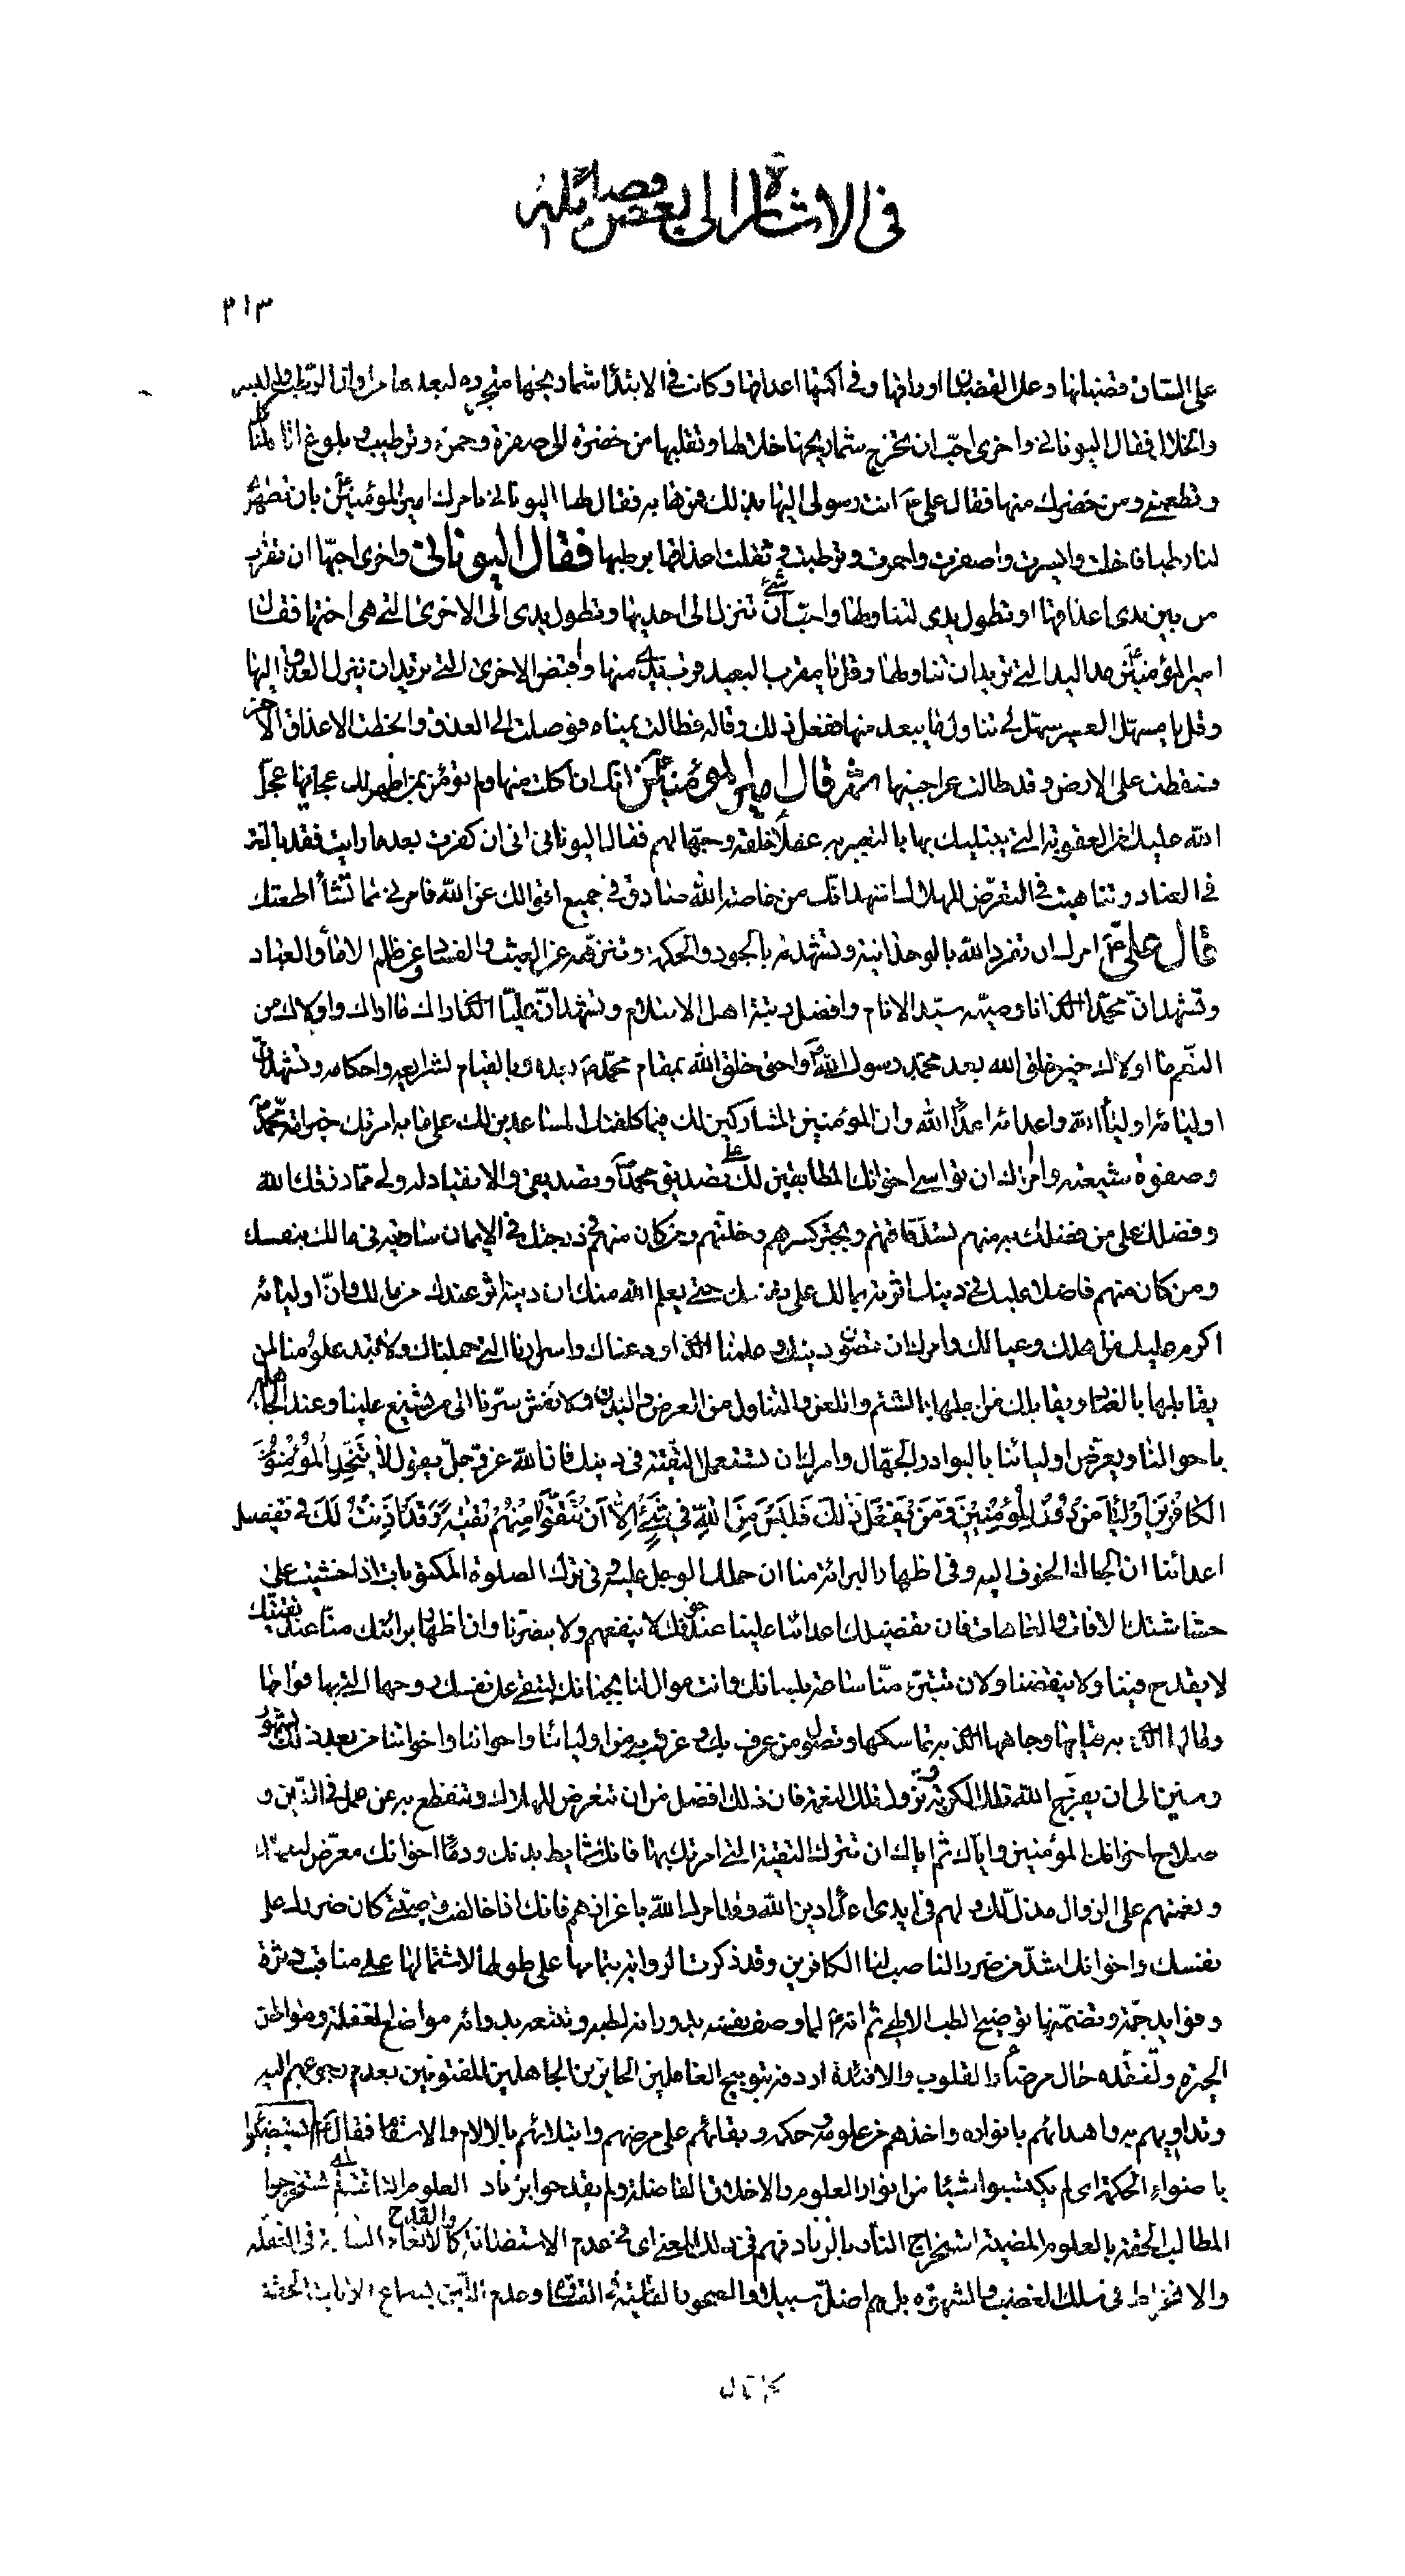 في الاشارة الى بعض فضائله
٣١٣
على الساق قضبانها وعلى القضبان اوراقها وفي اكمتها اعذاقها وكانت في الابتداء شماريخها متجردة لبعد عهدها من اوان الرطب والبسر
والخلال فقال اليوناني واخرى احب ان تخرج شماريخها خلالها وتقلبها من خضرة الى صفرة وحمرة وترطيب وبلوغ اناه لتأكل
وتطعمني ومن حضرك منها فقال علي ع انت رسولي اليها بذلك فمرها به فقال لها اليوناني ما امرك امير المؤمنين بان تظهر
لنا رطبا فاخلت وابسرت واصفرت واحمرت وترطبت وثقلت اعذاقها برطبها فقال اليوناني واخرى احبها ان تقرب
من بين يدي اعذاقها او تطول يدي لتناولها واحب شئ ان تنزل الى احديهما وتطول يدي الى الاخرى التي هي اختها فقال
امير المؤمنين مد اليد التي تريد ان تناولها وقل يا مقرب البعيد قرب يدي منها واقبض الاخرى التي تريد ان ينزل العذق اليها
وقل يا مسهل العسير سهل لي تناول ما يبعد منها ففعل ذلك وقاله فطالت يمناه فوصلت الى العذق وانحطت الاعذاق الاخر
فسقطت على الارض وقد طالت عراجينها ثم قال امير المؤمنين انك ان اكلت منها ولم تؤمن بمن اظهر لك عجائبها عجل
الله عليك من العقوبة التي يبتليك بها ما يعتبر به عقلاء خلقه وجهالهم فقال اليوناني اني ان كفرت بعد ما رايت فقد بالغت
في العناد وتناهيت في التعرض للهلاك اشهد انك من خاصة الله صادق في جميع اقوالك عن الله فامرني بما تشاء اطعك
قال علي ع امرك ان تفرد الله بالوحدانية وتشهد له بالجود والحكمة وتنزهه عن العبث والفساد وعن ظلم الاماء والعباد
وتشهد ان محمدا الذي انا وصيه سيد الانام وافضل رتبة اهل الاسلام وتشهد ان عليا الذي اراك ما اراك واولاك من
النعم ما اولاك خير خلق الله بعد محمد رسول الله ص واحق خلق الله بمقام محمد ص بعده وبالقيام بشرايعه واحكامه وتشهد ان
اوليائه اولياء الله واعدائه اعداء الله وان المؤمنين المشاركين لك فيما كلفتك المساعدين لك على ما به امرتك خير امة محمد ص
وصفوة شيعته وامرك ان تواسي اخوانك المطابقين لك على تصديق محمد ص وتصديقي والانقياد له ولي مما رزقك الله
وفضلك على من فضلك به منهم تسد فاقتهم وتجبر كسرهم وخلتهم ومن كان منهم في درجتك في الايمان ساويته في مالك بنفسك
ومن كان منهم فاضلا عليك في دينك اثرته بمالك على نفسك حتى يعلم الله منك ان دينه اثر عندك من مالك وان اوليائه
اكرم عليك من اهلك وعيالك وامرك ان تصون دينك وعلمنا الذي اودعناك واسرارنا التي حملناك ولا تبد علومنا لمن
يقابلها بالعناد ويقابلك من اجلها بالشتم واللعن والتناول من العرض والبدن ولا تفش سرنا الى من يشنع علينا وعند الجاهلين
باحوالنا ويعرض اوليائنا بالبوادر الجهال وامرك ان تستعمل التقية في دينك فان الله عز وجل يقول لا يَتَّخِذِ الْمُؤْمِنُونَ
الْكَافِرِينَ أَوْلِيَاءَ مِنْ دُونِ الْمُؤْمِنِينَ وَمَنْ يَفْعَلْ ذٰلِكَ فَلَيْسَ مِنَ اللهِ فِي شَيْءٍ إِلَّا أَنْ تَتَّقُوا مِنْهُمْ تُقٰيةً وَقَدْ أَذِنْتُ لَكَ في تفضيل
اعدائنا ان الجاك الخوف اليه وفي اظهار البرائة منا ان حملك الوجل عليه وفي ترك الصلوة المكتوبات اذا خشيت على
حشاشتك الافات والعاهات فان تفضيلك اعدائنا علينا عند خوفك لا ينفعهم ولا يضرنا وان اظهار برائتك منا عند تقيتك
لا يقدح فينا ولا ينقصنا ولان تتبرء منا ساعة بلسانك وانت موال لنا بجنانك لتبقي على نفسك روحها التي بها قوامها
ومالها الذي به قيامها وجاهها الذي به تماسكها وتصون من عرف بك وعرفت به من اوليائنا واخواننا واخواتنا من بعد ذلك بشهور
وسنين الى ان يفرج الله تلك الكربة وتزول تلك الغمة فان ذلك افضل من ان تتعرض للهلاك وتنقطع به عن عمل في الدين و
صلاح اخوانك المؤمنين واياك ثم اياك ان تترك التقية التي امرتك بها فانك شايط بدمك ودماء اخوانك معرض لنعمتك
ونعمتهم على الزوال مذل لك ولهم في ايدي اعداء دين الله وقد امرك الله باعزازهم فانك ان خالفت وصيتي كان ضررك على
نفسك واخوانك اشد من ضرر الناصب لنا الكافر بنا وقد ذكرت الرواية بتمامها على طولها لاشتمالها على مناقب دثرة
وفوايد جمة وتضمنها توضيح الطب الالهي ثم انه ع لما وصف نفسه بدورانه لطبه وتتبعه بدوائه مواضع الغفلة ومواطن
الحيرة وتفقده حال مرضاء القلوب والافئدة اردفه بتوبيخ الغافلين الحايرين الجاهلين المفتونين بعدم رجوعهم اليه
وتداويهم به واهتدائهم بانواره واخذهم من علومه وحكمه وبقائهم على مرضهم وابتلائهم بالالام والاسقام فقال لم يستضيئوا
باضواء الحكمة اي لم يكتسبوا شيئا من انوار العلوم والاخلاق الفاضلة ولم يقدحوا بزناد العلوم الثاقبة لم يستخرجوا
المطالب الحقة بالعلوم المضيئة استخراج النار بالزناد فهم في ذلك المعنى اي في عدم الاستضائة والقدح كالانعام السائمة في الغفلة
والانخراط في سلك الغضب والشهوة بل هم اضل سبيلا والصخور القاسية في القساوة وعدم التاثر بسماع الايات الحقة